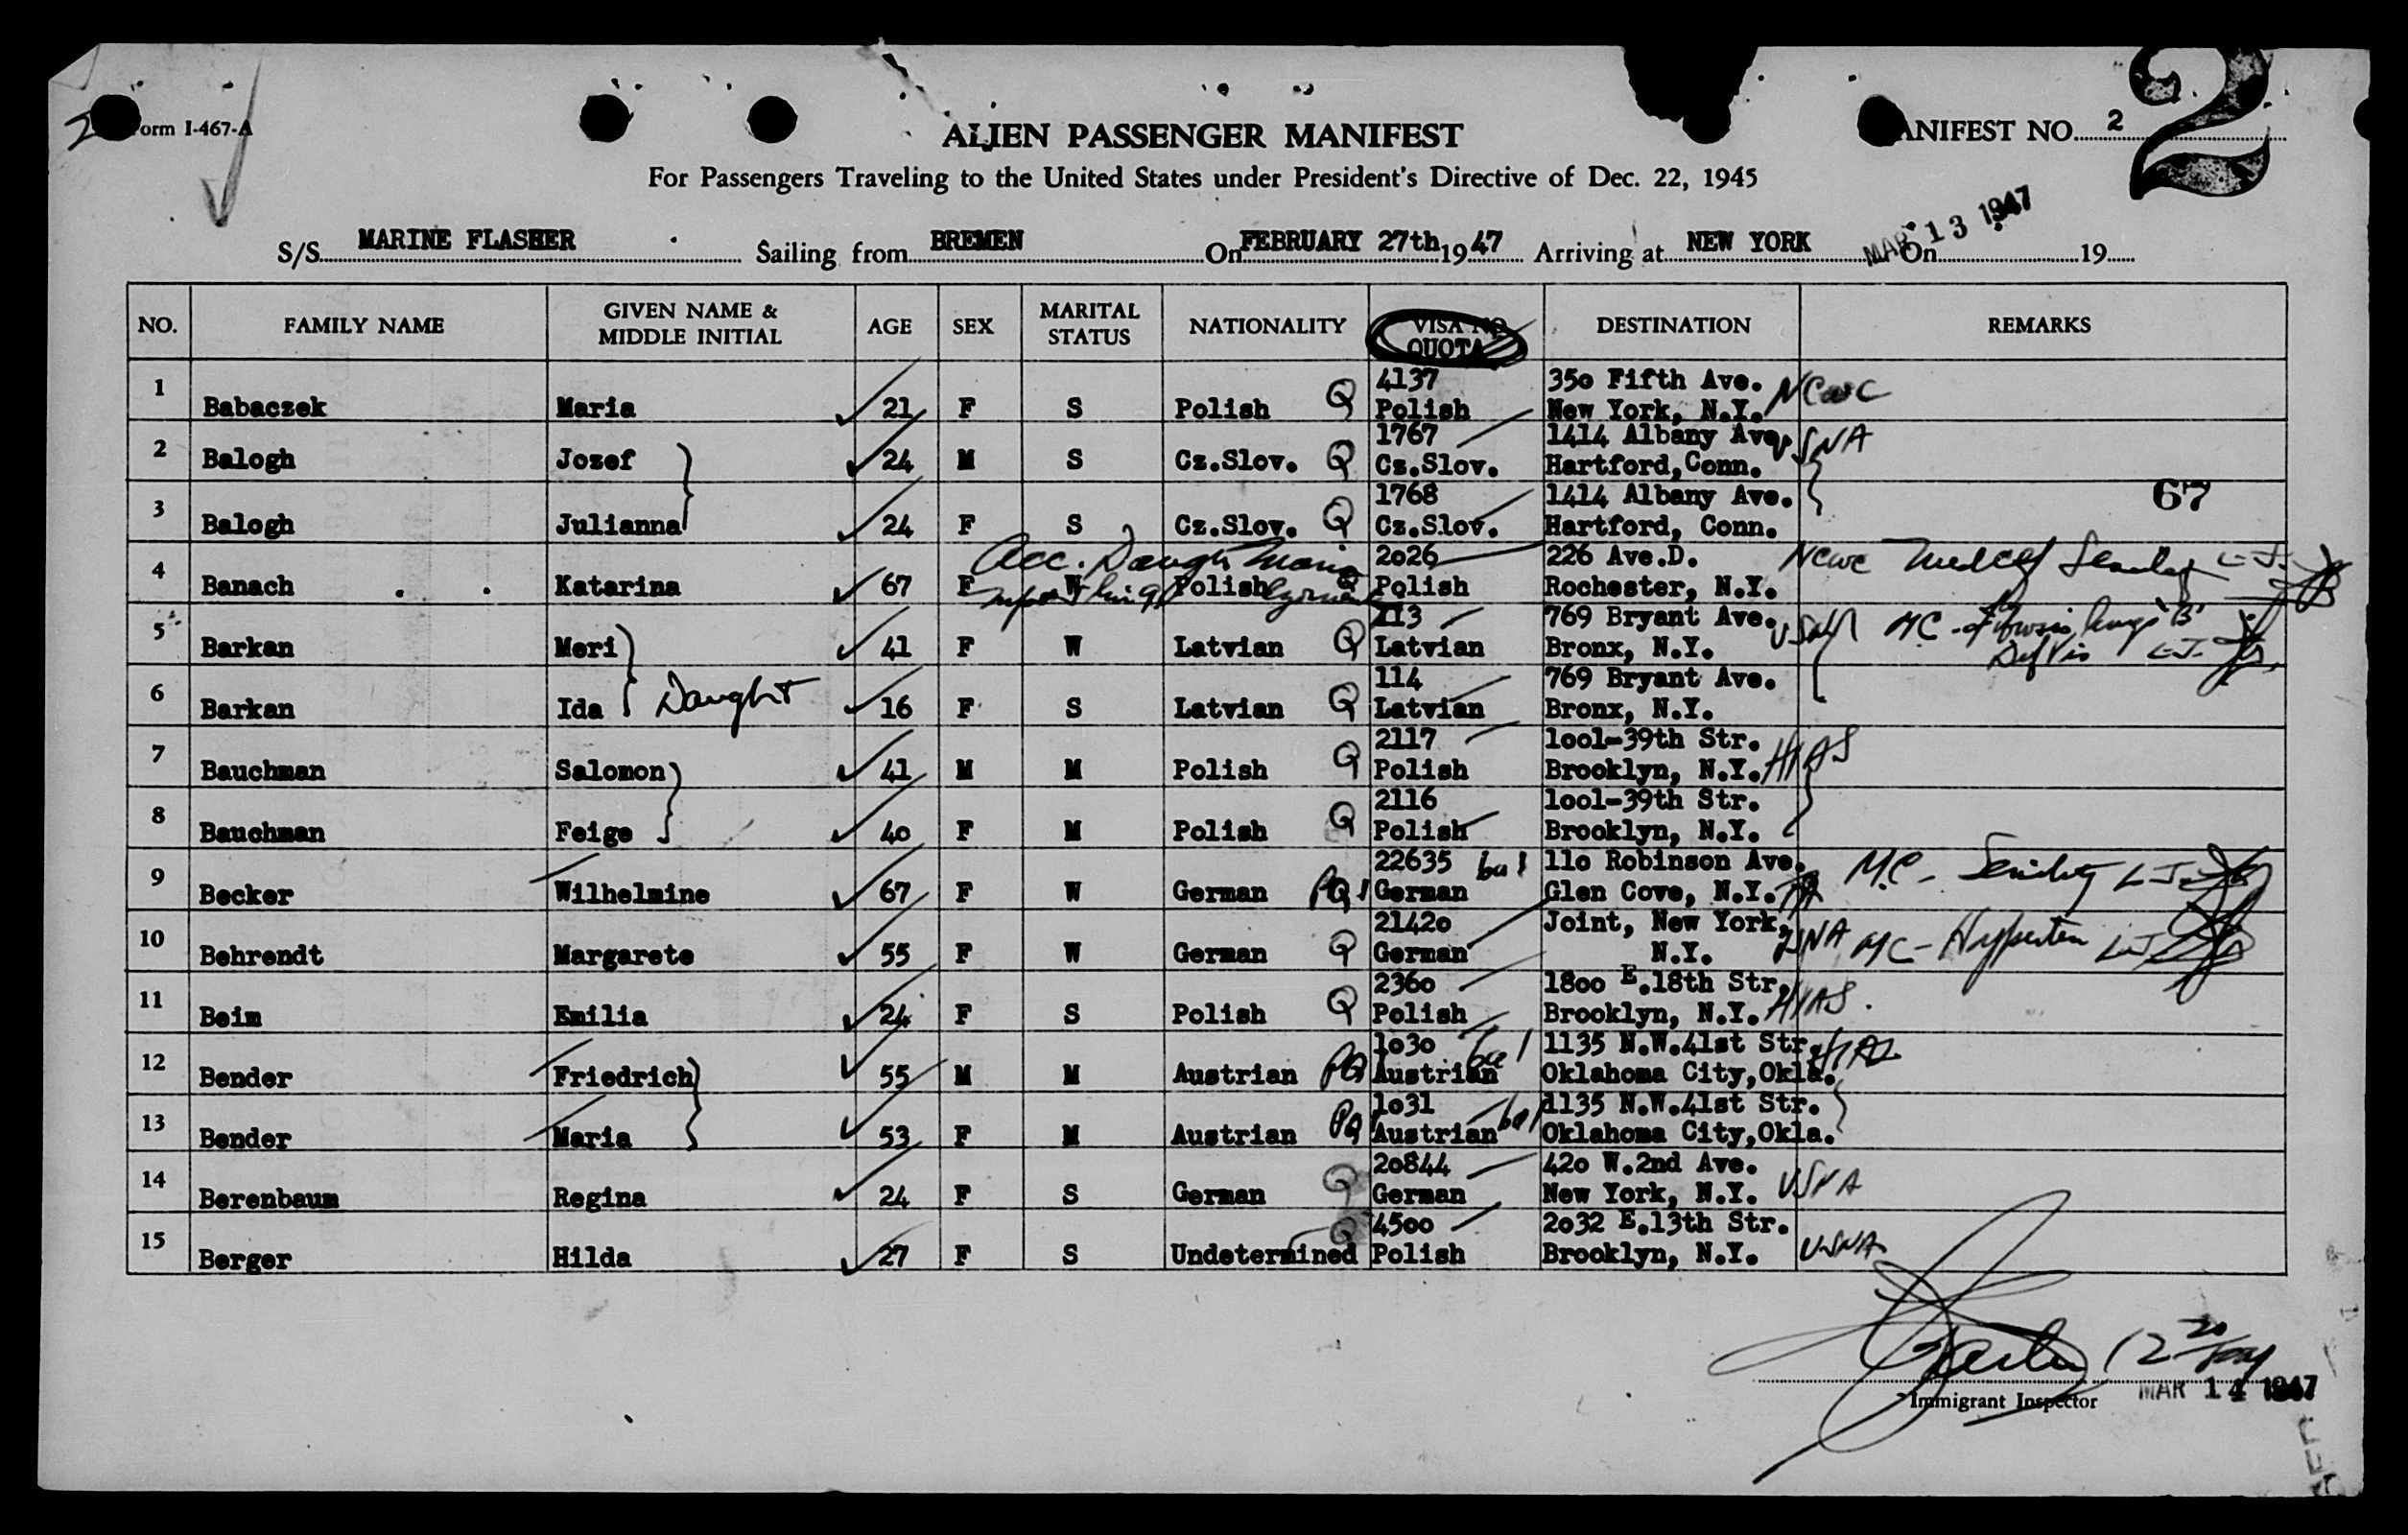 2
Form I-467-A
ALIEN PASSENGER MANIFEST
MANIFEST NO. 2
2
For Passengers Traveling to the United States under President's Directive of Dec. 22, 1945
S/S MARINE FLASHER Sailing from BREMEN On FEBRUARY 27th 19 47 Arriving at NEW YORK On 19
MAR 13 1947
NO. FAMILY NAME GIVEN NAME & MIDDLE INITIAL AGE SEX MARITAL STATUS NATIONALITY VISA NO. QUOTA DESTINATION REMARKS
1 Babaczek Maria 21 F S Polish Q 4137 Polish 350 Fifth Ave. New York, N.Y. NCWC
2 Balogh Jozef 24 M S Cz.Slov. Q 1767 Cz.Slov. 1414 Albany Ave. Hartford, Conn. USNA
3 Balogh Julianna 24 F S Cz.Slov. Q 1768 Cz.Slov. 1414 Albany Ave. Hartford, Conn.
67
Acc. Daugh Maria
4 Banach Katarina 67 F W Polish Q 2026 Polish 226 Ave.D. Rochester, N.Y. NCWC
5 Barkan Meri 41 F W Latvian Q 113 Latvian 769 Bryant Ave. Bronx, N.Y. USNA MC - Fibrosis lungs "B"
Def Vis
6 Barkan Ida Daught 16 F S Latvian Q 114 Latvian 769 Bryant Ave. Bronx, N.Y.
7 Bauchman Salomon 41 M M Polish Q 2117 Polish 1001-39th Str. Brooklyn, N.Y. HIAS
8 Bauchman Feige 40 F M Polish Q 2116 Polish 1001-39th Str. Brooklyn, N.Y.
9 Becker Wilhelmine 67 F W German PQ 22635 German 110 Robinson Ave. Glen Cove, N.Y. M.C- Senility
10 Behrendt Margarete 55 F W German Q 21420 German Joint, New York, N.Y. USNA MC - Hyperten
11 Beim Emilia 24 F S Polish Q 2360 Polish 1800 E.18th Str. Brooklyn, N.Y. HIAS.
12 Bender Friedrich 55 M M Austrian PQ 1030 Austrian bal 1135 N.W.41st Str. Oklahoma City, Okla. HIAS
13 Bender Maria 53 F M Austrian PQ 1031 Austrian bal 1135 N.W.41st Str. Oklahoma City, Okla.
14 Berenbaum Regina 24 F S German Q 20844 German 420 W.2nd Ave. New York, N.Y. USNA
15 Berger Hilda 27 F S Undetermined Q 4500 Polish 2032 E.13th Str. Brooklyn, N.Y. USNA
12 20
Immigrant Inspector
MAR 14 1947